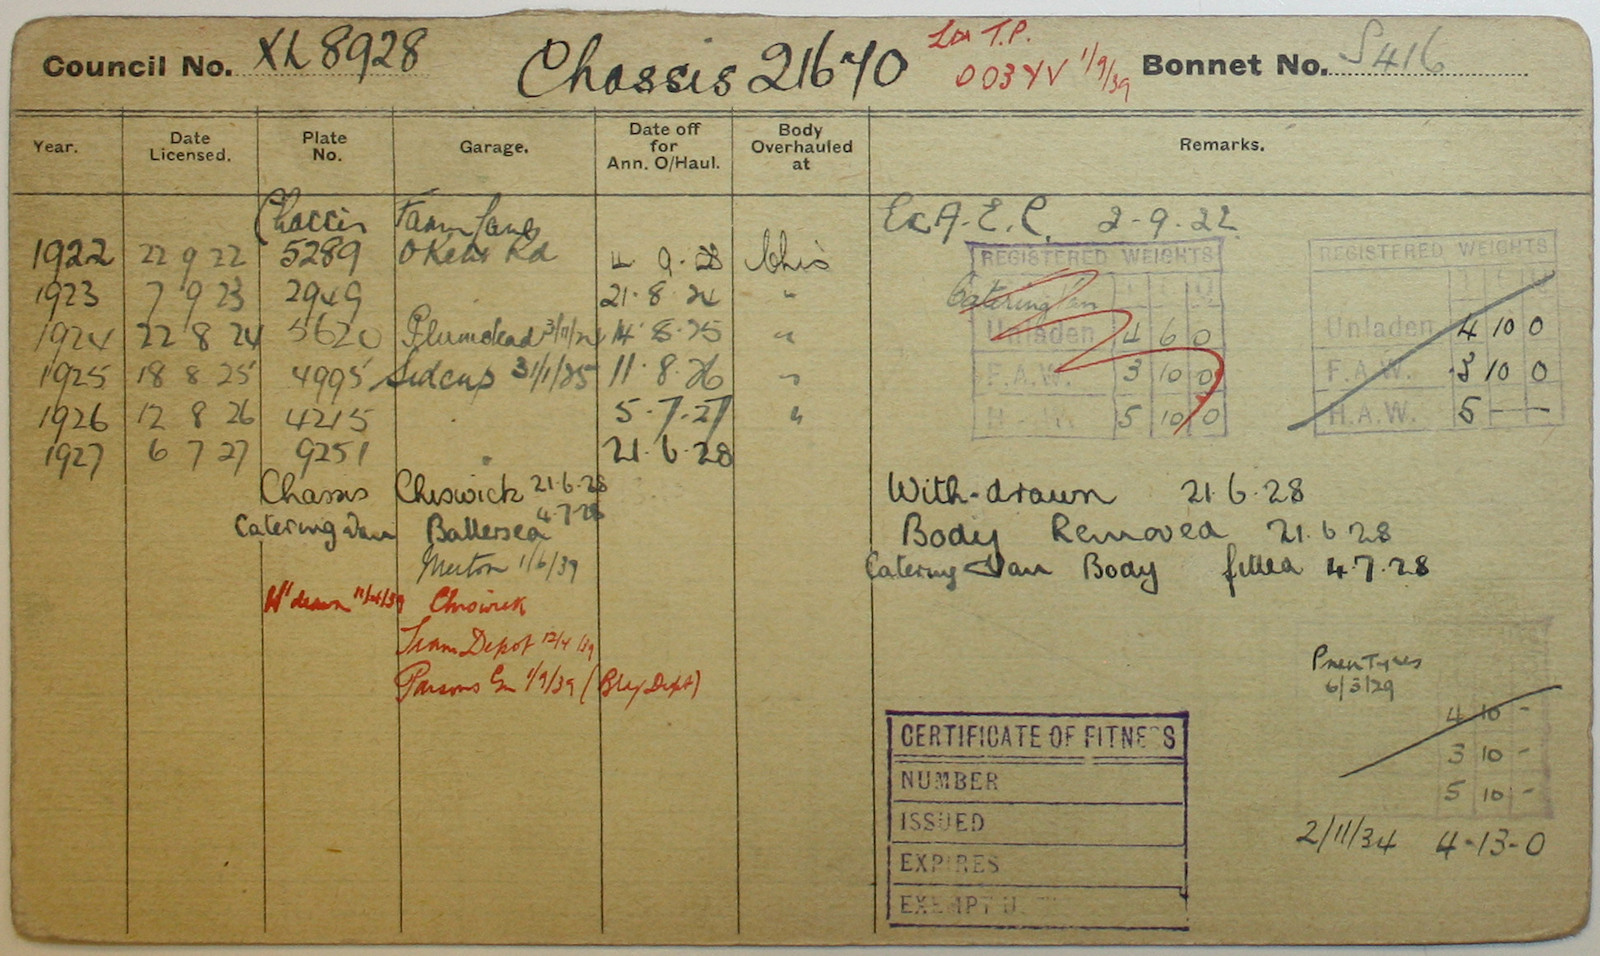 Council No. XL 8928 Chassis 21670 Bonnet No. S416
Lon T.P.
003 YV 1/9/39
Year. Date Licensed. Plate No. Garage. Date off for Ann. O/Haul. Body Overhauled at Remarks.
Chassis Farm Lane Ex A.E.C. 2-9-22
1922 22 9 22 5289 9 Chis
1923 7 9 23 2949 21.8.24 "
1924 22 8 24 5620 Plumstead 14.8.25 "
1925 18 8 25 4995 Sidcup 31/1/25 11.8.26 "
1926 12 8 26 4215 5.7.27 "
1927 6 7 27 9251 21.6.28
REGISTERED WEIGHTS
Catering Van
Unladen 4 6 0
F.A.W. 3 10 0
H 5 10 0
REGISTERED WEIGHTS
Unladen 4 10 0
F.A.W. 3 10 0
H.A.W. 5 - -
Chassis Chiswick 21.6.28 With-drawn 21.6.28
Catering Van Battersea 4.7.28 Body Removed 21.6.28
Merton 1/6/39 Catering Van Body fitted 4.7.28
W'drawn Chiswick
Tram Depot 12/4/39
Parsons Gn 1/9/39 (Dept)
Pneu Tyres
6/3/29
4 10 -
3 10 -
5 10 -
2/11/34 4-13-0
CERTIFICATE OF FITNESS
NUMBER
ISSUED
EXPIRES
EXEMPT